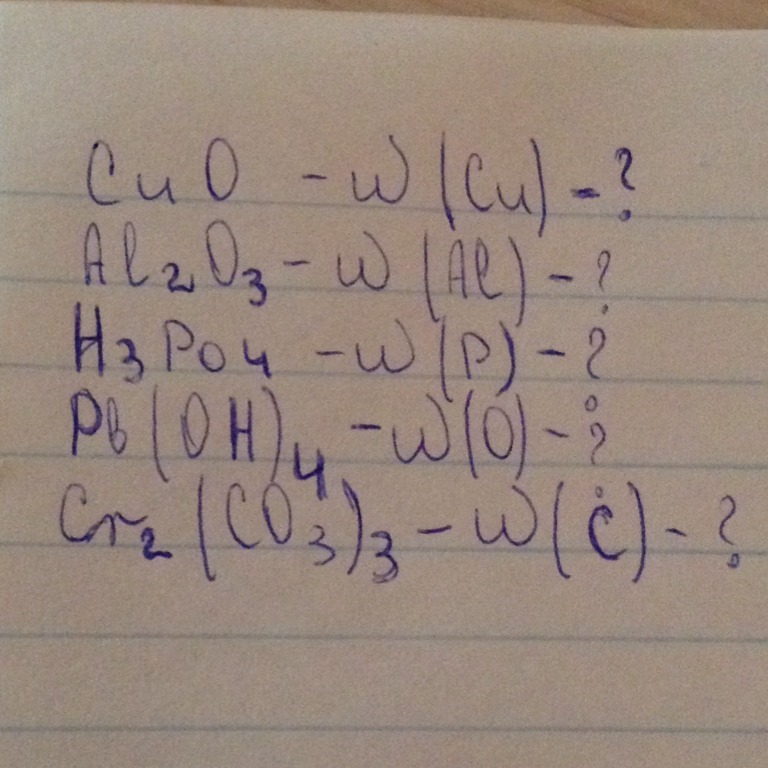 CuO - W (Cu) - ?
Al₂O₃ - W (Al) - ?
H₃PO₄ - W (P) - ?
Pb(OH)₄ - W (O) - ?
Cr₂(CO₃)₃ - W (C) - ?